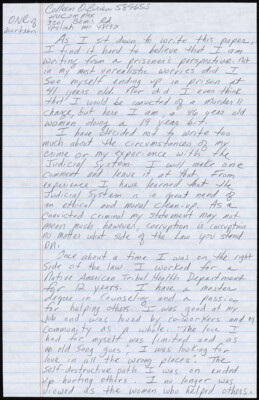 ONE of
thirteen
Colleen O'Brien 584653
WHV Cm Plex
3201 Bemis Rd
Ypsilanti MI 48197
As I sit down to write this paper,
I find it hard to believe that I am
writing from a prisoners perspective. Not
in my most unrealistic worries did I
see myself ending up in prison at
41 years old. Nor did I even think
that I would be convicted of a Murder II
charge, but here I am, a 46 year old
women doing a 19 year bit.
I have decided not to write too
much about the circumstances of my
crime or my experience with the
Judicial System. I will make one
comment and leave it at that. From
experience I have learned that the
Judicial System is in great need of
an ethical and moral clean-up. As a
convicted criminal my statement may not
mean much, however, corruption is corruption
no matter what side of the Law you stand
on.
Once about a time I was on the right
side of the law. I worked for a
Native American Tribal Health Department
for 12 years. I have a master
degree in Counseling and a passion
for helping others. I was good at my
job and was loved by co-workers and my
community as a whole. The love I
had for myself was limited and as
an old song gives, I was looking for
love in all the wrong places. The
self-destructive path I was on ended
up hurting others. I no longer was
viewed as the women who helped others.